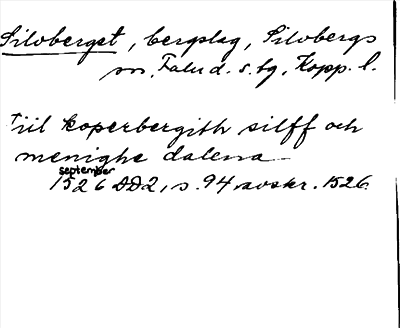 Silvberget, bergslag, Silvbergs
sn, Falu d. s. tg, Kopp. l.
Till koperbergith silff och
menighe dalena
september
1526 DD2, s. 94 avskr. 1526